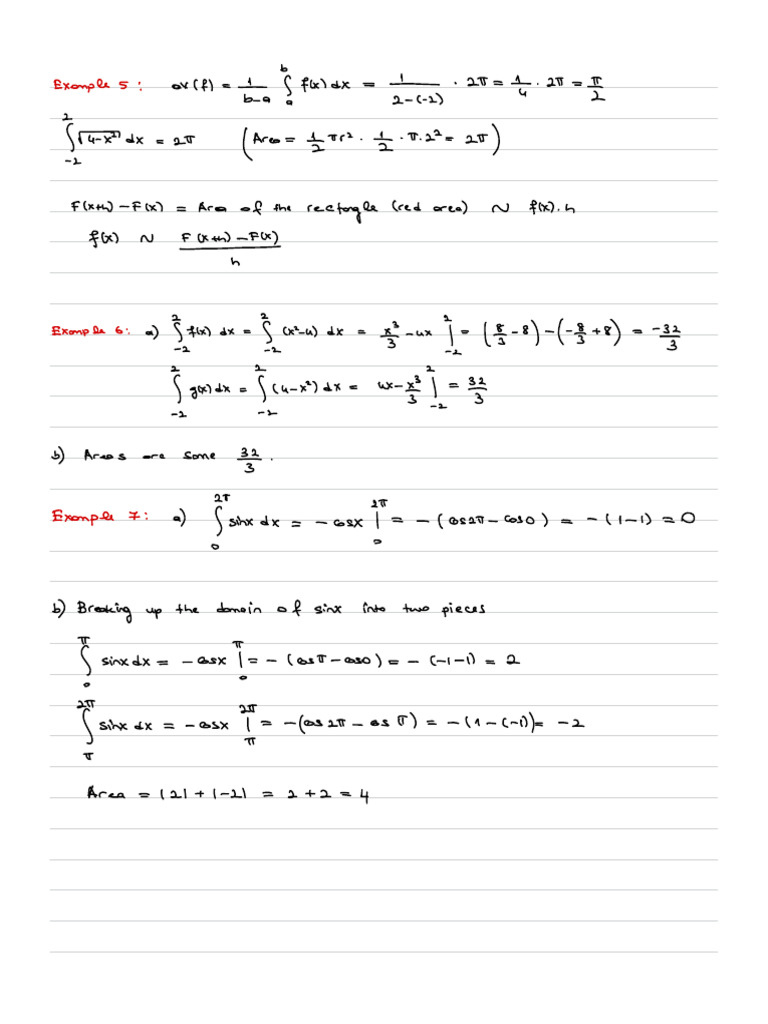 Example 5: av(f) = 1/(b-a) ∫_a^b f(x) dx = 1/(2-(-2)) · 2π = 1/4 · 2π = π/2
∫_{-2}^{2} √(4-x²) dx = 2π (Area = 1/2 πr² · 1/2 · π·2² = 2π)
F(x+h) - F(x) = Area of the rectangle (red area) ~ f(x)·h
f(x) ~ (F(x+h) - F(x))/h
Example 6: a) ∫_{-2}^{2} f(x) dx = ∫_{-2}^{2} (x²-4) dx = x³/3 - 4x |_{-2}^{2} = (8/3 - 8) - (-8/3 + 8) = -32/3
∫_{-2}^{2} g(x) dx = ∫_{-2}^{2} (4-x²) dx = 4x - x³/3 |_{-2}^{2} = 32/3
b) Areas are same 32/3.
Example 7: a) ∫_0^{2π} sinx dx = - cosx |_0^{2π} = - (cos2π - cos0) = - (1-1) = 0
b) Breaking up the domain of sinx into two pieces
∫_0^π sinx dx = - cosx |_0^π = - (cosπ - cos0) = - (-1-1) = 2
∫_π^{2π} sinx dx = - cosx |_π^{2π} = -(cos 2π - cos π) = -(1-(-1)) = -2
Area = |2| + |-2| = 2 + 2 = 4